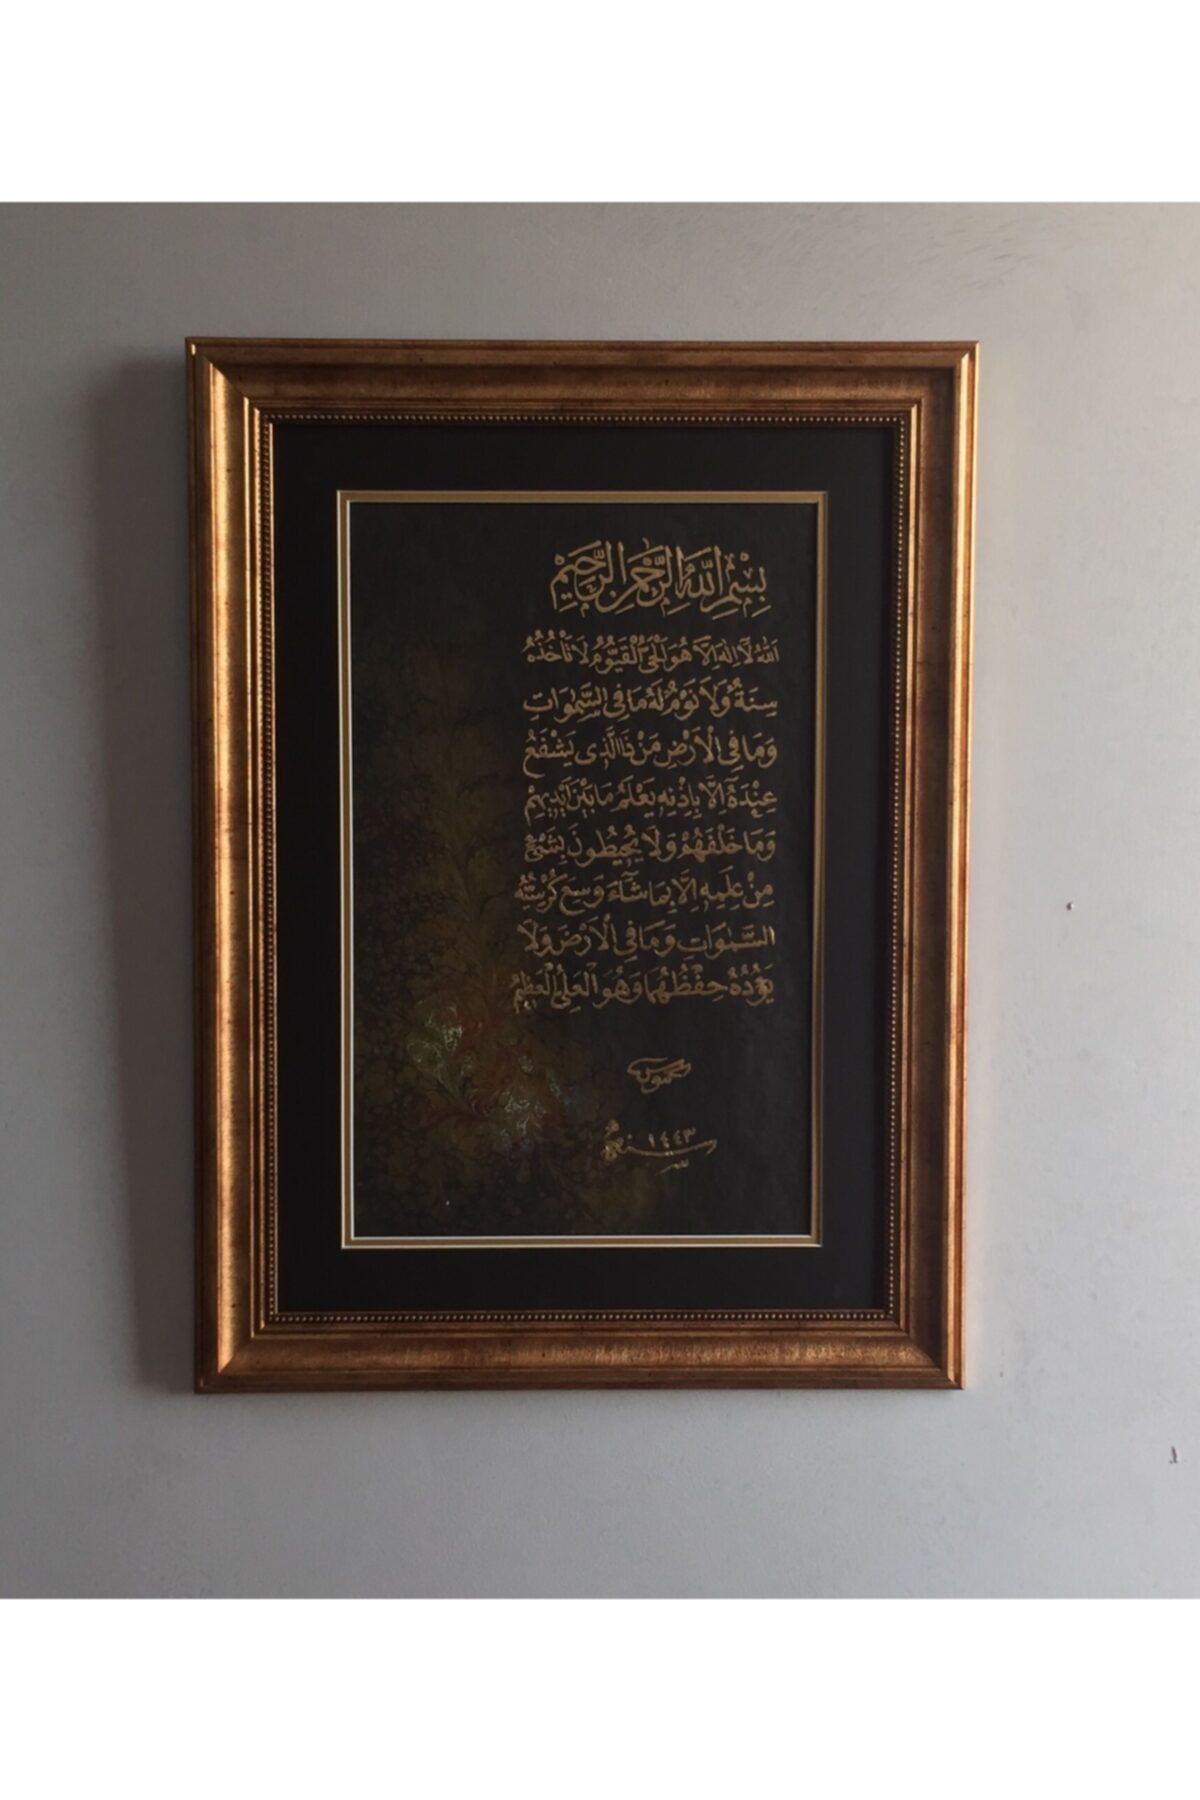 بِسْمِ اللّٰهِ الرَّحْمٰنِ الرَّحِيمِ
اَللّٰهُ لَٓا اِلٰهَ اِلَّا هُوَ الْحَيُّ الْقَيُّومُ لَا تَأْخُذُهُ
سِنَةٌ وَلَا نَوْمٌ لَهُ مَا فِي السَّمٰوَاتِ
وَمَا فِي الْاَرْضِ مَنْ ذَا الَّذِي يَشْفَعُ
عِنْدَهُٓ اِلَّا بِاِذْنِهِ يَعْلَمُ مَا بَيْنَ اَيْدِيهِمْ
وَمَا خَلْفَهُمْ وَلَا يُحِيطُونَ بِشَيْءٍ
مِنْ عِلْمِهِ اِلَّا بِمَا شَٓاءَ وَسِعَ كُرْسِيُّهُ
السَّمٰوَاتِ وَمَا فِي الْاَرْضَ وَلَا
يَؤُدُهُ حِفْظُهُمَا وَهُوَ الْعَلِيُّ الْعَظِيمُ
سنه ١٤٤٣